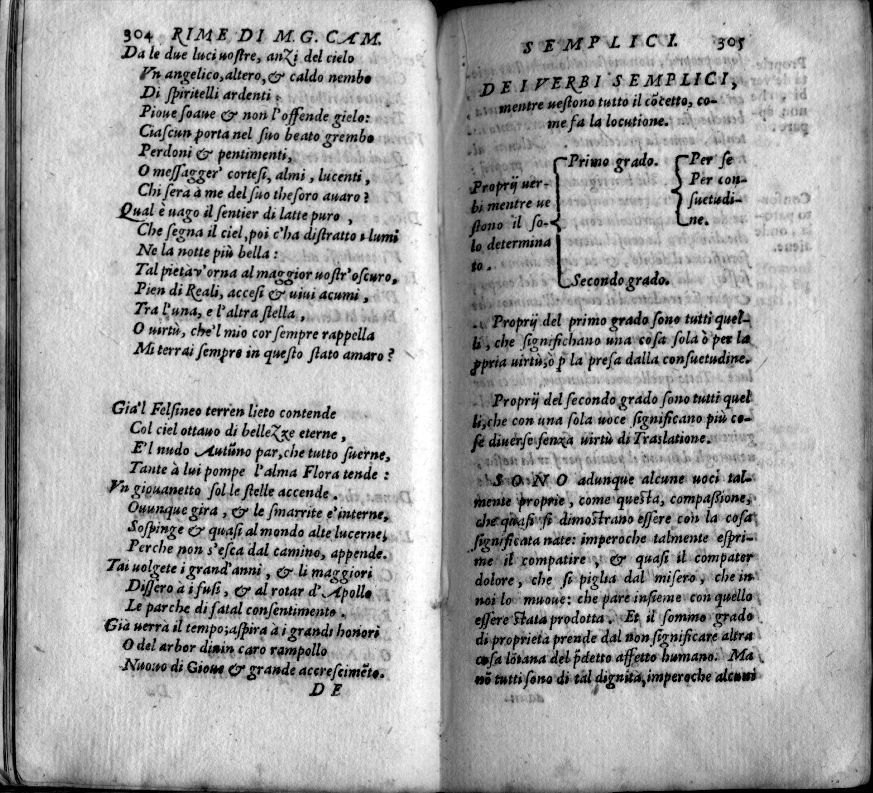 304 RIME DI M.G. CAM.
Da le due luci uostre, anzi del cielo
Vn angelico, altero, & caldo nembo
Di spiritelli ardenti.
Pioue soaue & non l'offende gielo:
Ciascun porta nel suo beato grembo
Perdoni & pentimenti,
O messagger' cortesi, almi, lucenti,
Chi serà à me del suo thesoro auaro?
Qual è uago il sentier di latte puro,
Che segna il ciel, poi c'ha distratto i lumi
Ne la notte più bella:
Tal pietà v'orna al maggior uostr'oscuro,
Pien di Reali, accesi & uiui acumi,
Tra l'una, e l'altra stella,
O uirtù, che'l mio cor sempre rappella
Mi terrai sempre in questo stato amaro?
Gia'l Felsineo terren lieto contende
Col ciel ottauo di bellezze eterne,
E'l nudo Autũno par, che tutto suerne,
Tante à lui pompe l'alma Flora tende:
Vn giouanetto sol le stelle accende.
Ouunque gira, & le smarrite e'interne,
Sospinge & quasi al mondo alte lucerne,
Perche non s'esca dal camino, appende.
Tai uolgete i grand'anni, & li maggiori
Dissero à i fusi, & al rotar d'Apollo
Le parche di fatal consentimento.
Gia uerra il tempo; aspira à i grandi honori
O del arbor diuin caro rampollo
Nuouo di Gioue & grande accrescimẽto.
DE
SEMPLICI. 305
DEI VERBI SEMPLICI,
mentre uestono tutto il cõcetto, co-
me fa la locutione.
Proprij uer-
bi mentre ue
stono il so-
lo determina
to.
Primo grado.
Per se
Per con-
suetudi-
ne.
Secondo grado.
Proprij del primo grado sono tutti quel-
li, che significhano una cosa sola ò per la
ꝓpria uirtù, ò ꝑ la presa dalla consuetudine.
Proprij del secondo grado sono tutti quel
li, che con una sola uoce significano più co-
se diuerse senza uirtù di Traslatione.
SONO adunque alcune uoci tal-
mente proprie, come questa, compassione,
che quasi si dimostrano essere con la cosa
significata nate: imperoche talmente espri-
me il compatire, & quasi il compater
dolore, che si piglia dal misero, che in
noi lo muoue: che pare insieme con quello
essere stata prodotta. Et il sommo grado
di proprieta prende dal non significare altra
cosa lõtana del p̃detto affetto humano. Ma
nõ tutti sono di tal dignità, imperoche alcuni